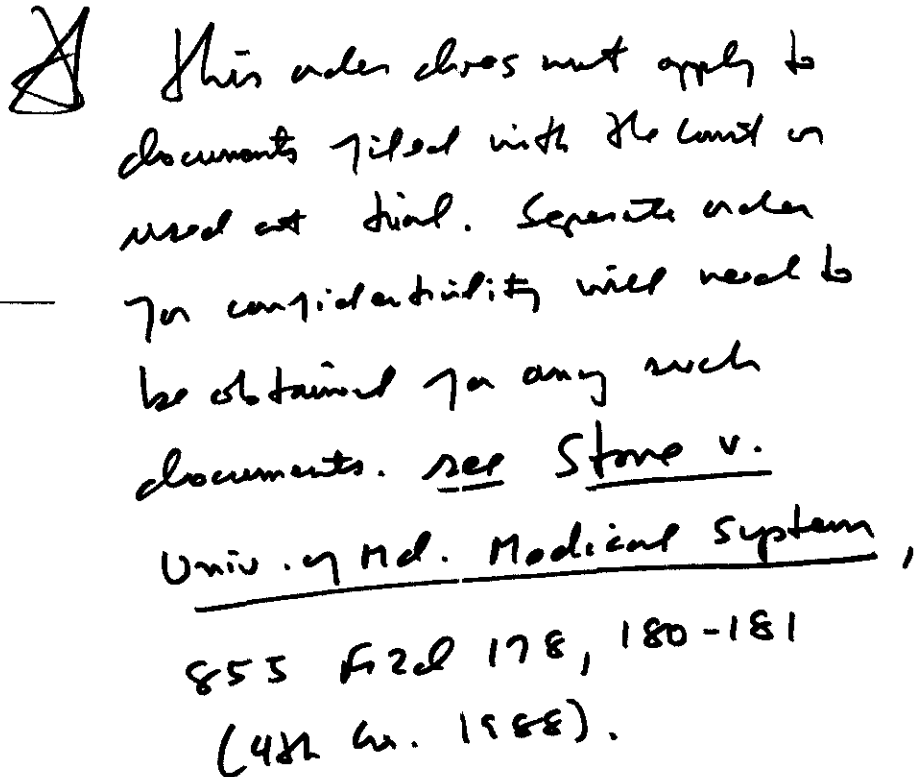 This order does not apply to
documents filed with the court or
used at trial. Separate order
for confidentiality will need to
be obtained for any such
documents. see Stone v.
Univ. of Md. Medical System,
855 F.2d 178, 180-181
(4th Cir. 1988).